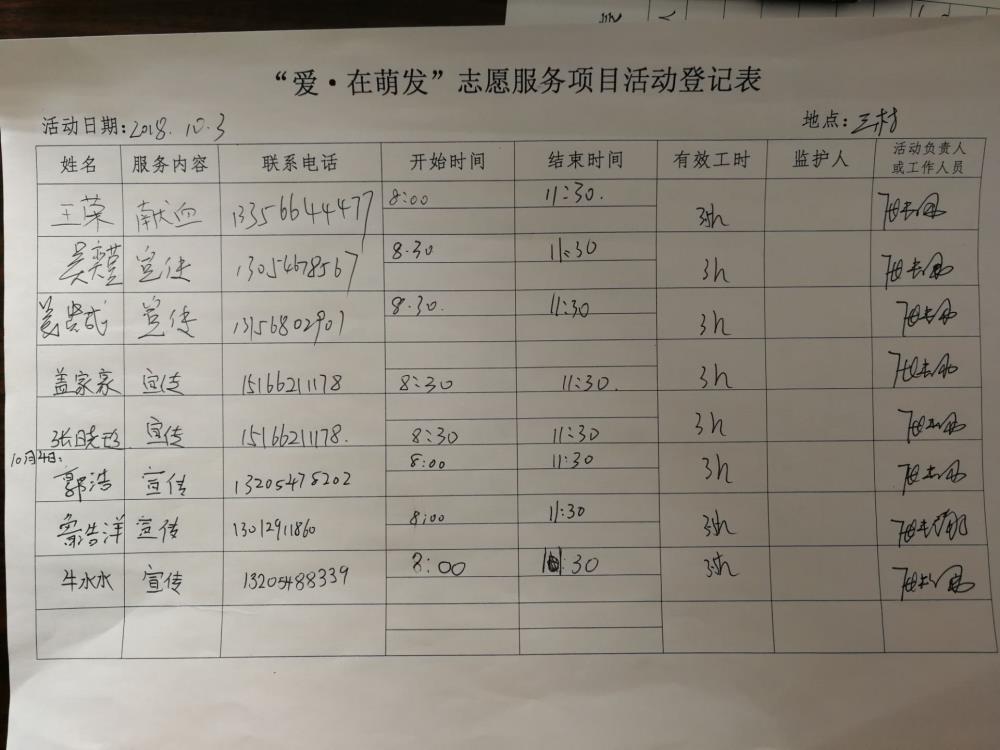 “爱·在萌发”志愿服务项目活动登记表
活动日期:2018.10.3 地点:三村
姓名 服务内容 联系电话 开始时间 结束时间 有效工时 监护人 活动负责人或工作人员
王荣 献血 13356644477 8:00 11:30. 3.5h
宣传 13054678567 8.30 11:30 3h
宣传 13156802907 8.30. 11:30 3h
盖家豪 宣传 15166211178 8:30 11:30. 3h
张晓 宣传 15166211178. 8:30 11:30 3h
10月4日:
郭浩 宣传 13205478202 8:00 11:30 3h
浩洋 宣传 13012911860 8:00 11:30 3.5h
牛水水 宣传 13205488339 8:00 11:30 3.5h